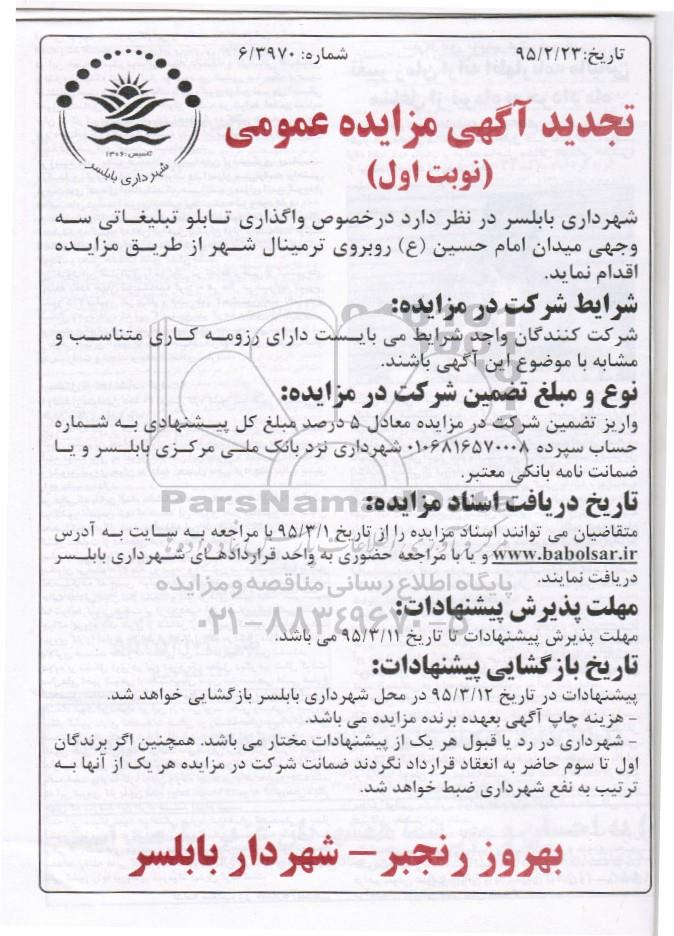 تاریخ: ۹۵/۲/۲۳
شماره: ۶/۳۹۷۰
تاسیس: ۱۳۰۶
شهرداری بابلسر
تجدید آگهی مزایده عمومی
(نوبت اول)
شهرداری بابلسر در نظر دارد درخصوص واگذاری تابلو تبلیغاتی سه
وجهی میدان امام حسین (ع) روبروی ترمینال شهر از طریق مزایده
اقدام نماید.
شرایط شرکت در مزایده:
شرکت کنندگان واجد شرایط می بایست دارای رزومه کاری متناسب و
مشابه با موضوع این آگهی باشند.
نوع و مبلغ تضمین شرکت در مزایده:
واریز تضمین شرکت در مزایده معادل ۵ درصد مبلغ کل پیشنهادی به شماره
حساب سپرده ۰۱۰۶۸۱۶۵۷۰۰۰۸ شهرداری نزد بانک ملی مرکزی بابلسر و یا
ضمانت نامه بانکی معتبر.
ParsNamadData
تاریخ دریافت اسناد مزایده:
متقاضیان می توانند اسناد مزایده را از تاریخ ۹۵/۳/۱ با مراجعه به سایت به آدرس
www.babolsar.ir و یا با مراجعه حضوری به واحد قراردادهای شهرداری بابلسر
دریافت نمایند.
پایگاه اطلاع رسانی مناقصه و مزایده
مهلت پذیرش پیشنهادات:
۰۲۱-۸۸۳۴۹۶۷۰-۵
مهلت پذیرش پیشنهادات تا تاریخ ۹۵/۳/۱۱ می باشد.
تاریخ بازگشایی پیشنهادات:
پیشنهادات در تاریخ ۹۵/۳/۱۲ در محل شهرداری بابلسر بازگشایی خواهد شد.
- هزینه چاپ آگهی بعهده برنده مزایده می باشد.
- شهرداری در رد یا قبول هر یک از پیشنهادات مختار می باشد. همچنین اگر برندگان
اول تا سوم حاضر به انعقاد قرارداد نگردند ضمانت شرکت در مزایده هر یک از آنها به
ترتیب به نفع شهرداری ضبط خواهد شد.
بهروز رنجبر - شهردار بابلسر